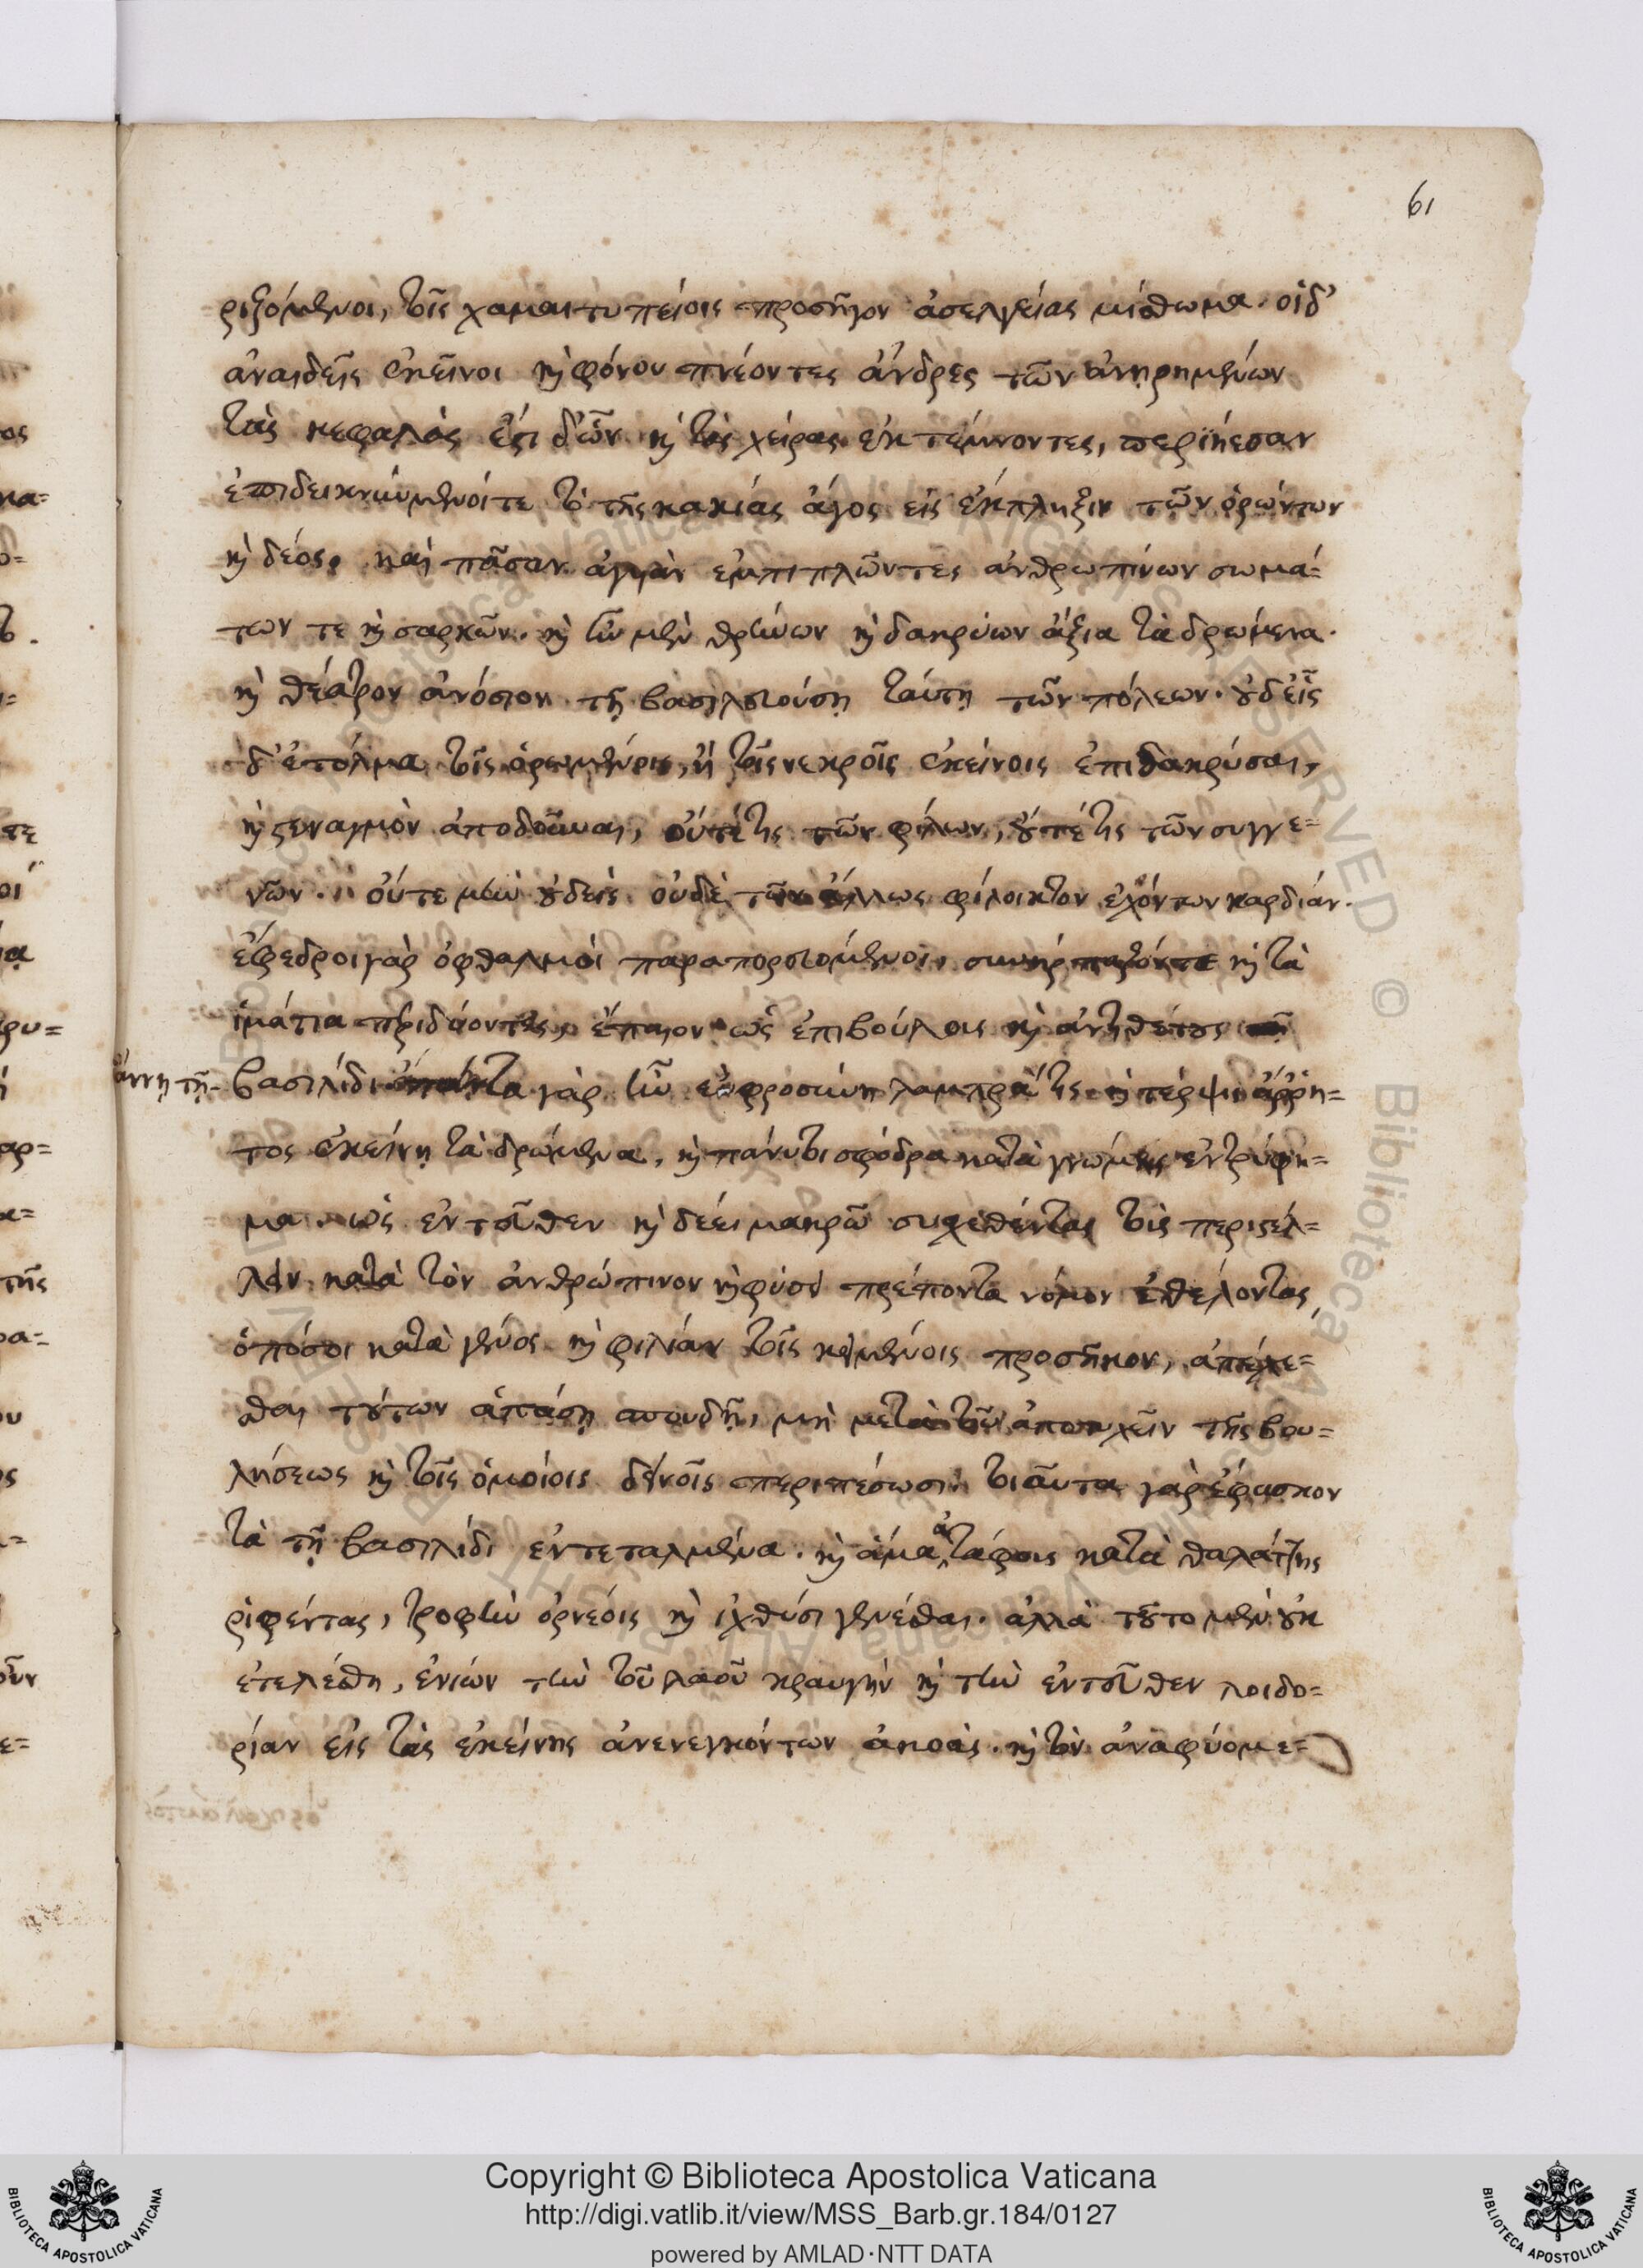 61
ριζόμενοι, τοῖς χαμαιτυπείοις προσῆγον ἀσελγείας μίσθωμα. οἱ δ'
ἀναιδεῖς ἐκεῖνοι καὶ φόνου πνέοντες ἄνδρες τῶν ἀνῃρημένων
τὰς κεφαλὰς ἔστι δ' ὧν καὶ τὰς χεῖρας ἐκτέμνοντες, περιῄεσαν
ἐπιδεικνύμενοί τε τὸ τῆς κακίας ἄγος εἰς ἔκπληξιν τῶν ὁρώντων
καὶ δέος, καὶ πᾶσαν ἀγυιὰν ἐμπιπλῶντες ἀνθρωπίνων σωμά=
των τε καὶ σαρκῶν. καὶ ἦν μὲν θρήνων καὶ δακρύων ἄξια τὰ δρώμενα.
καὶ θέατρον ἀνόσιον τῇ βασιλευούσῃ ταύτῃ τῶν πόλεων. οὐδεὶς
δ' ἐτόλμα τοῖς ὁρωμένοις, ἢ τοῖς νεκροῖς ἐκείνοις ἐπιδακρύσαι,
καὶ στεναγμὸν ἀποδοῦναι, οὔτέ τις τῶν φίλων, οὔτέ τις τῶν συγγε=
νῶν. οὔτε μὴν οὐδεὶς οὐδὲ τῶν ἄλλως φίλοικτον ἐχόντων καρδίαν.
ἔφεδροι γὰρ ὀφθαλμοὶ παραπορευόμενοι, καὶ τὰ
ἱμάτια ἔπαιον ὡς ἐπιβούλοις καὶ ἀντιθέτοις
ἄννῃ τῇ
βασιλίδι γὰρ ἦν εὐφροσύνη λαμπρά τις καὶ τέρψις ἄρρη=
τος ἐκείνῃ τὰ δρώμενα, καὶ πάνυ τοι σφόδρα κατὰ γνώμης ἐντρύφη=
μα. ὡς ἐντεῦθεν καὶ δέει μακρῶ συσχεθέντας τοὺς περιστέλ=
λειν κατὰ τὸν ἀνθρώπινον καὶ φύσει πρέποντα νόμον ἐθέλοντας,
ὁπόσοι κατὰ γένος καὶ φιλίαν τοῖς κειμένοις προσῆκον, ἀπέχε=
σθαι τούτων ἁπάσῃ σπουδῇ, μὴ μετὰ τοῦ ἀποτυχεῖν τῆς βου=
λήσεως καὶ τοῖς ὁμοίοις δεινοῖς περιπέσωσι. τοιαῦτα γὰρ ἔφασκον
τὰ τῇ βασιλίδι ἐντεταλμένα. καὶ ἅμα ἀτάφους κατὰ θαλάττης
ῥιφέντας, τροφὴν ὀρνέοις καὶ ἰχθύσι γενέσθαι. ἀλλὰ τοῦτο μὲν οὐκ
ἐτελέσθη, ἐνίων τὴν τοῦ λαοῦ κραυγὴν καὶ τὴν ἐντεῦθεν λοιδο=
ρίαν εἰς τὰς ἐκείνης ἀνενεγκόντων ἀκοάς. καὶ τὸν ἀναφυόμε=
Copyright © Biblioteca Apostolica Vaticana
http://digi.vatlib.it/view/MSS_Barb.gr.184/0127
powered by AMLAD·NTT DATA
BIBLIOTECA APOSTOLICA VATICANA
BIBLIOTECA APOSTOLICA VATICANA